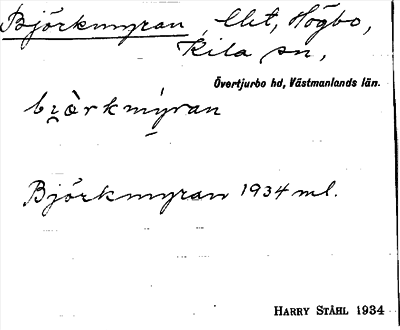 Björkmyran, Ulet, Högbo,
Kila sn,
Övertjurbo hd, Västmanlands län.
bi̯ òrkmy̆ran
Björkmyran 1934 ml.
HARRY STÅHL 1934